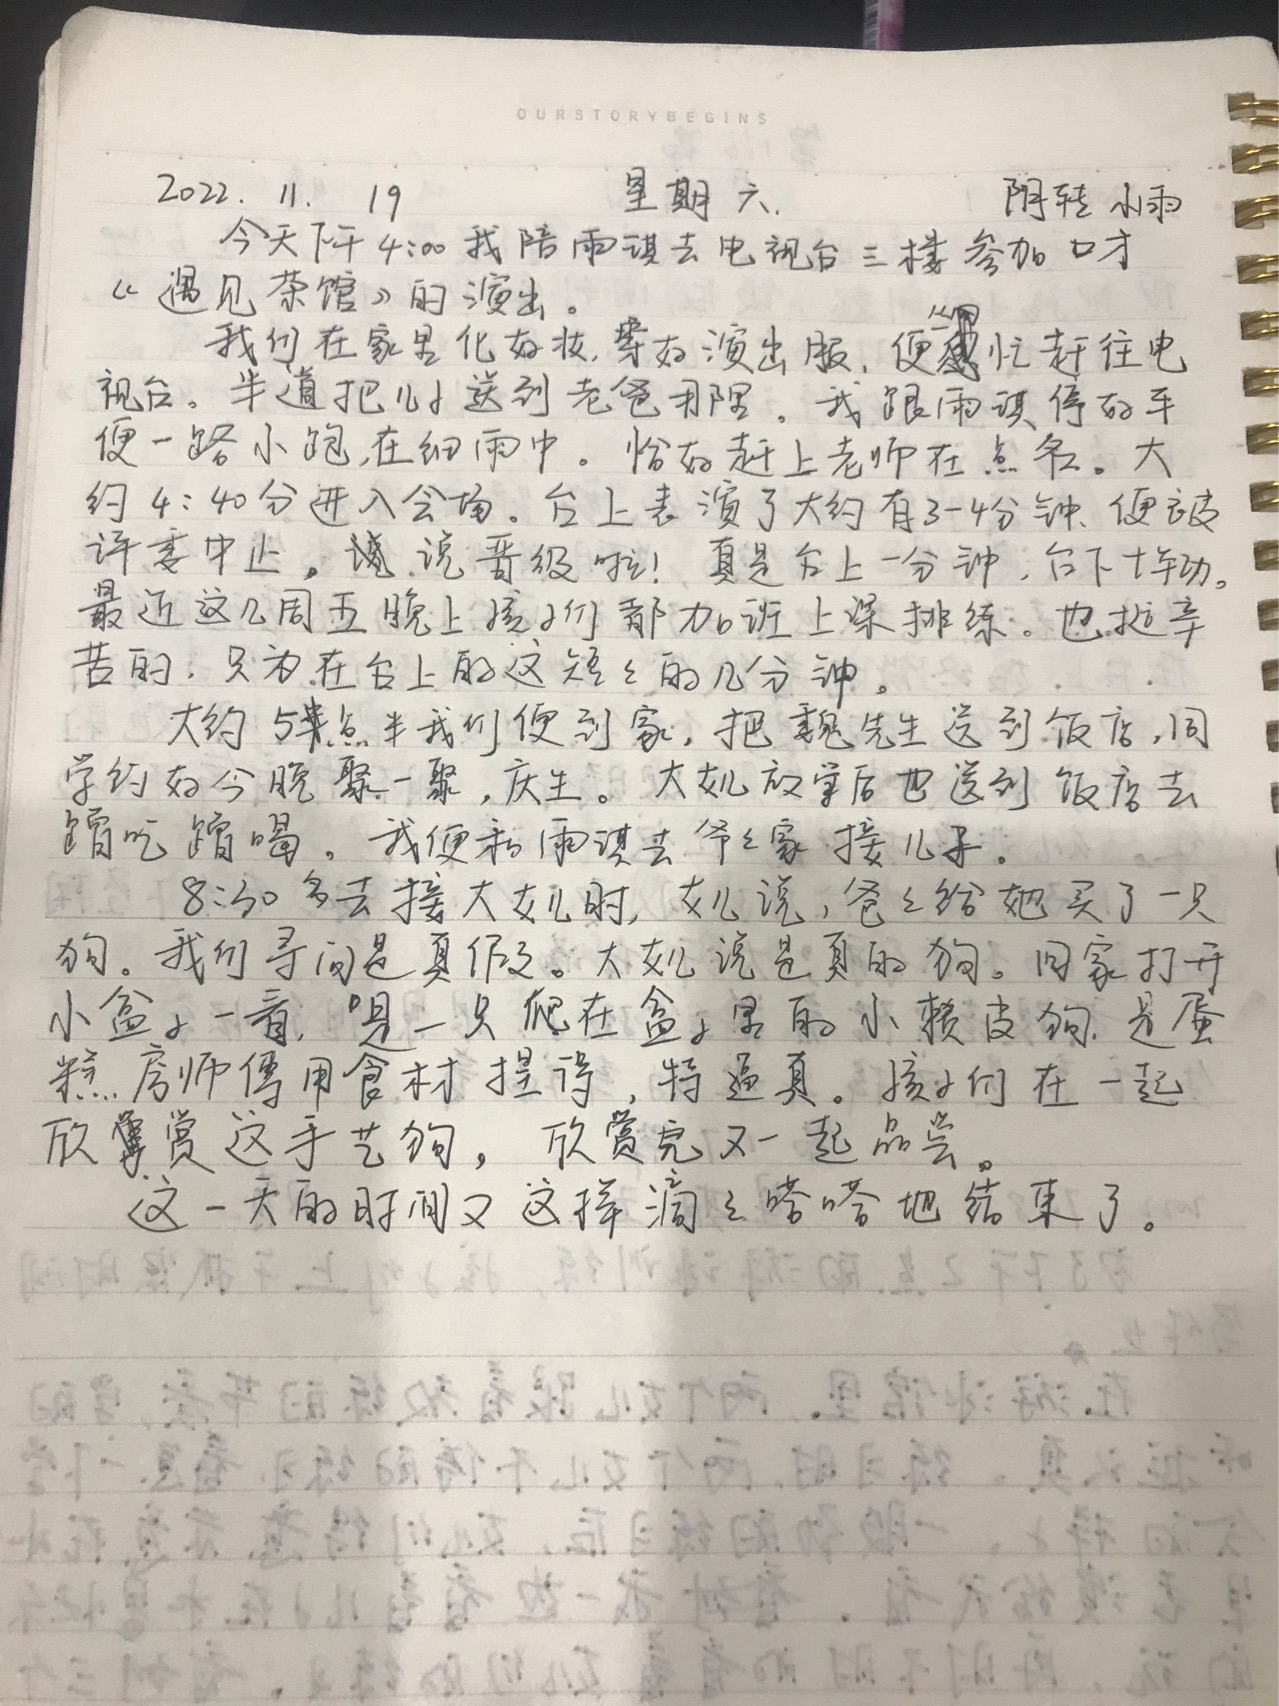 OURSTORYBEGINS
2022. 11. 19 星期六. 阴转小雨
今天下午4:00我陪雨琪去电视台三楼参加口才
《遇见茶馆》的演出。
我们在家里化好妆,穿好演出服,便匆忙赶往电
视台。半道把儿子送到老爸那里。我跟雨琪停好车
便一路小跑,在细雨中。恰好赶上老师在点名。大
约4:40分进入会场。台上表演了大约有3-4分钟、便被
评委中止。说晋级啦!真是台上一分钟,台下十年功。
最近这几周五晚上孩子们都加班上课排练。也挺辛
苦的,只为在台上的这短々的几分钟。
大约5点半我们便到家,把魏先生送到饭店,同
学约好今晚聚一聚,庆生。大女儿放学后也送到饭店去
蹭吃蹭喝。我便和雨琪去爷々家接儿子。
8:30多去接大女儿时,女儿说,爸々给她买了一只
狗。我们寻问是真假。大女儿说是真的狗。回家打开
小盒子一看,是一只爬在盒子里的小赖皮狗,是蛋
糕房师傅用食材捏得,特逼真。孩子们在一起
欣赏这手艺狗,欣赏完又一起品尝。
这一天的时间又这样滴々嗒嗒地结束了。